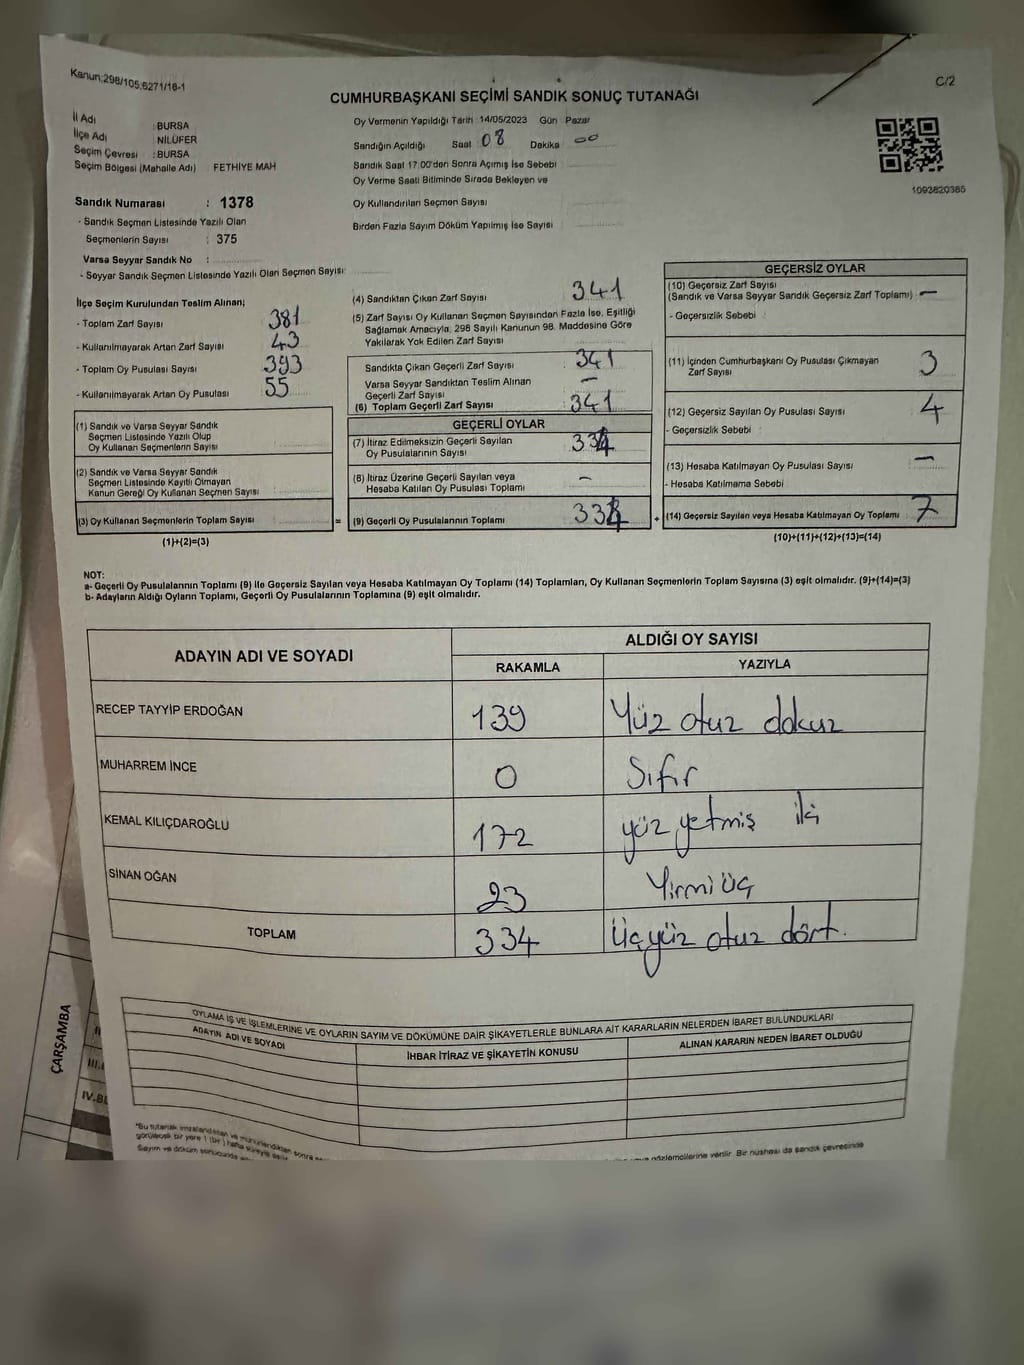 Kanun:298/105,6271/16-1
C/2
CUMHURBAŞKANI SEÇİMİ SANDIK SONUÇ TUTANAĞI
İl Adı : BURSA
İlçe Adı : NİLÜFER
Seçim Çevresi : BURSA
Seçim Bölgesi (Mahalle Adı) FETHİYE MAH
Sandık Numarası : 1378
- Sandık Seçmen Listesinde Yazılı Olan
Seçmenlerin Sayısı : 375
Varsa Seyyar Sandık No :
- Seyyar Sandık Seçmen Listesinde Yazılı Olan Seçmen Sayısı:
Oy Vermenin Yapıldığı Tarih 14/05/2023 Gün Pazar
Sandığın Açıldığı Saat 08 Dakika 00
Sandık Saat 17:00'den Sonra Açılmış İse Sebebi
Oy Verme Saati Bitiminde Sırada Bekleyen ve
Oy Kullandırılan Seçmen Sayısı
Birden Fazla Sayım Döküm Yapılmış İse Sayısı
1093820385
İlçe Seçim Kurulundan Teslim Alınan;
- Toplam Zarf Sayısı 381
- Kullanılmayarak Artan Zarf Sayısı 43
- Toplam Oy Pusulası Sayısı 393
- Kullanılmayarak Artan Oy Pusulası 55
(1) Sandık ve Varsa Seyyar Sandık
Seçmen Listesinde Yazılı Olup
Oy Kullanan Seçmenlerin Sayısı
(2) Sandık ve Varsa Seyyar Sandık
Seçmen Listesinde Kayıtlı Olmayan
Kanun Gereği Oy Kullanan Seçmen Sayısı
(3) Oy Kullanan Seçmenlerin Toplam Sayısı
(1)+(2)=(3)
=
(4) Sandıktan Çıkan Zarf Sayısı 341
(5) Zarf Sayısı Oy Kullanan Seçmen Sayısından Fazla İse, Eşitliği
Sağlamak Amacıyla, 298 Sayılı Kanunun 98. Maddesine Göre
Yakılarak Yok Edilen Zarf Sayısı
Sandıkta Çıkan Geçerli Zarf Sayısı 341
Varsa Seyyar Sandıktan Teslim Alınan
Geçerli Zarf Sayısı —
(6) Toplam Geçerli Zarf Sayısı 341
GEÇERLİ OYLAR
(7) İtiraz Edilmeksizin Geçerli Sayılan
Oy Pusulalarının Sayısı 334
(8) İtiraz Üzerine Geçerli Sayılan veya
Hesaba Katılan Oy Pusulası Toplamı —
(9) Geçerli Oy Pusulalarının Toplamı 334
+
GEÇERSİZ OYLAR
(10) Geçersiz Zarf Sayısı
(Sandık ve Varsa Seyyar Sandık Geçersiz Zarf Toplamı) —
- Geçersizlik Sebebi
(11) İçinden Cumhurbaşkanı Oy Pusulası Çıkmayan
Zarf Sayısı 3
(12) Geçersiz Sayılan Oy Pusulası Sayısı 4
- Geçersizlik Sebebi
(13) Hesaba Katılmayan Oy Pusulası Sayısı —
- Hesaba Katılmama Sebebi
(14) Geçersiz Sayılan veya Hesaba Katılmayan Oy Toplamı 7
(10)+(11)+(12)+(13)=(14)
NOT:
a- Geçerli Oy Pusulalarının Toplamı (9) ile Geçersiz Sayılan veya Hesaba Katılmayan Oy Toplamı (14) Toplamları, Oy Kullanan Seçmenlerin Toplam Sayısına (3) eşit olmalıdır. (9)+(14)=(3)
b- Adayların Aldığı Oyların Toplamı, Geçerli Oy Pusulalarının Toplamına (9) eşit olmalıdır.
ADAYIN ADI VE SOYADI
ALDIĞI OY SAYISI
RAKAMLA YAZIYLA
RECEP TAYYİP ERDOĞAN 139 Yüz otuz dokuz
MUHARREM İNCE 0 Sıfır
KEMAL KILIÇDAROĞLU 172 yüz yetmiş iki
SİNAN OĞAN 23 Yirmi üç
TOPLAM 334 Üçyüz otuz dört.
OYLAMA İŞ VE İŞLEMLERİNE VE OYLARIN SAYIM VE DÖKÜMÜNE DAİR ŞİKAYETLERLE BUNLARA AİT KARARLARIN NELERDEN İBARET BULUNDUKLARI
ADAYIN ADI VE SOYADI
İHBAR İTİRAZ VE ŞİKAYETİN KONUSU
ALINAN KARARIN NEDEN İBARET OLDUĞU
ÇARŞAMBA
*Bu tutanak imzalandıktan ve mühürlendikten sonra
görülecek bir yere 1 (bir) hafta süreyle
Sayım ve döküm sonucunda
gözlemcilerine verilir. Bir nüshası da sandık çevresinde